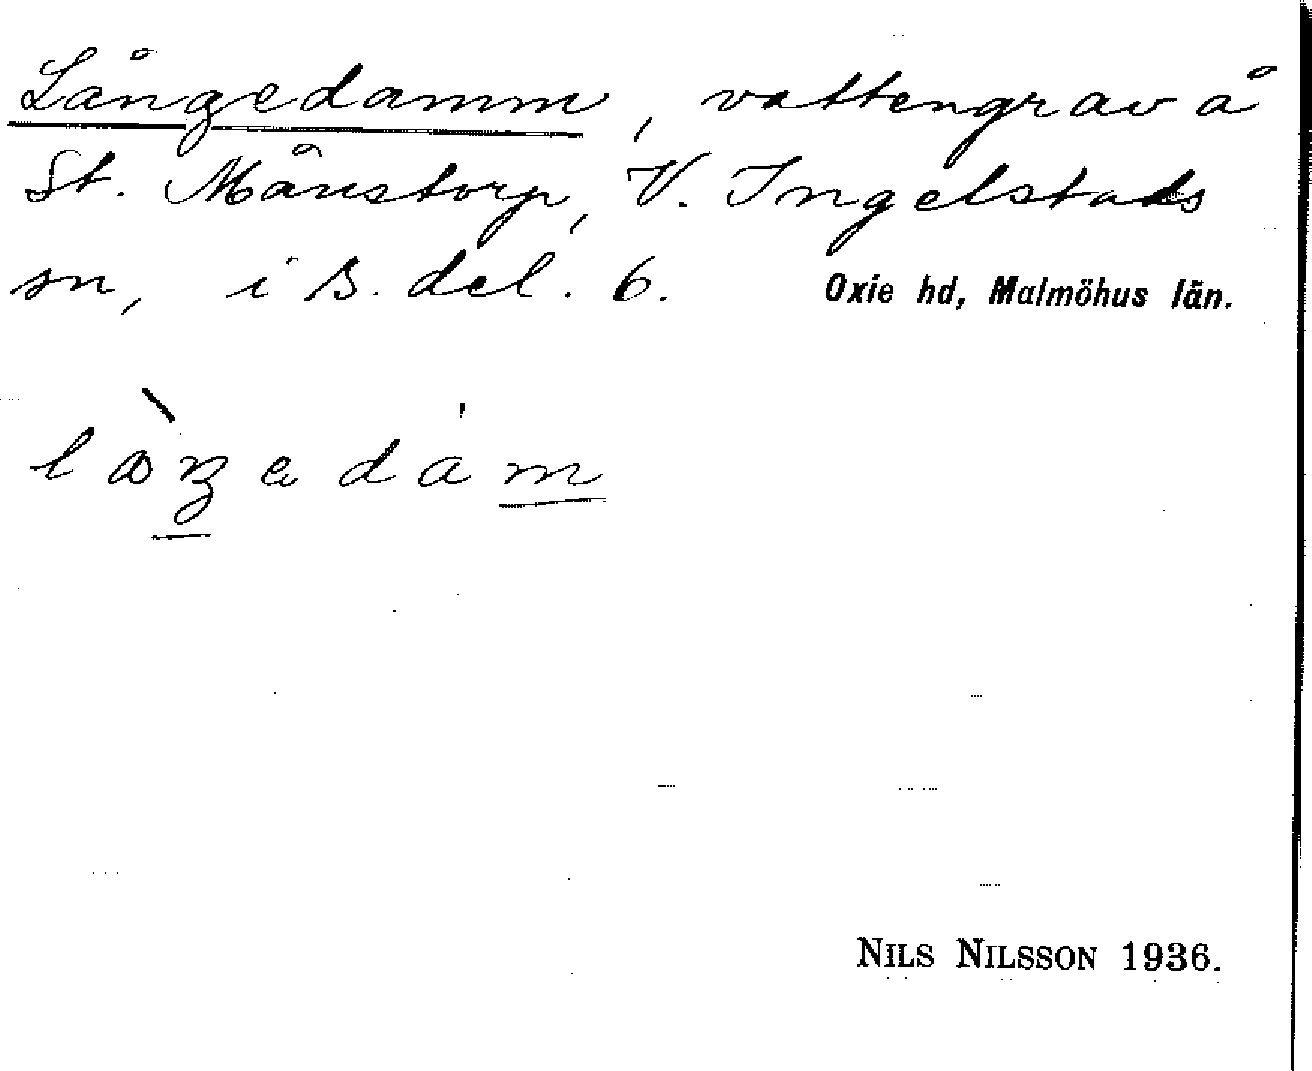 Långedamm, vattengrav å
St. Månstorp, V. Ingelstads
sn, i s. del. 6. Oxie hd, Malmöhus län.
NILS NILSSON 1936.